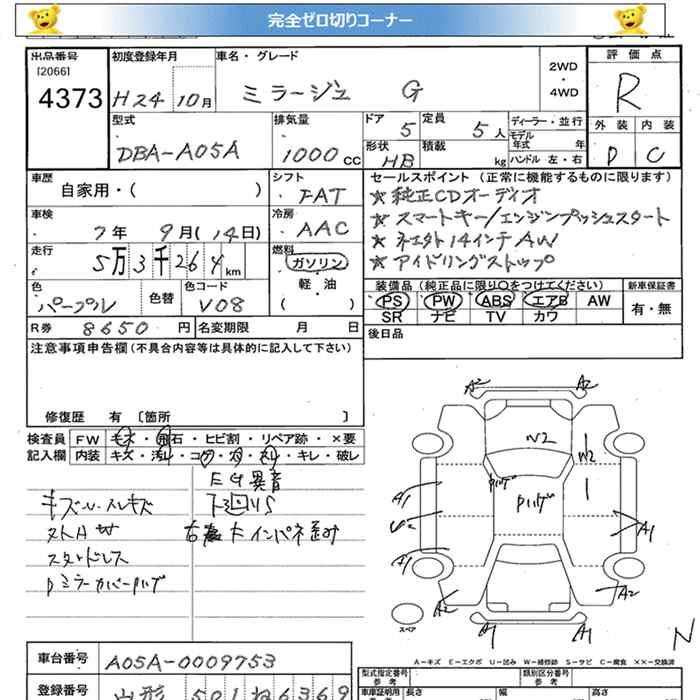 完全ゼロ切りコーナー
出品番号 初度登録年月 車名・グレード 2WD・4WD 評価点
[2066]
4373 H24 10月 ミラージュ G R
型式 排気量 ドア 5 定員 5人 ディーラー・並行 外装 内装
モデル年式 年
DBA-A05A 1000cc 形状 HB 積載 kg ハンドル 左・右 D C
車歴 シフト セールスポイント (正常に機能するものに限ります)
自家用・( ) FAT ★純正CDオーディオ
車検 冷房 ★スマートキー/エンジンプッシュスタート
7年 9月(14日) AAC
走行 燃料 ★アイドリングストップ
5万3千264km ガソリン
軽・油
( )
色 色替 色コード 装備品 (純正品に限り○をつけてください) 新車保証書
パープル V08 PS PW ABS エアB AW 有・無
SR ナビ TV カワ
R券 8650円 名変期限 月 日 後日品
注意事項申告欄(不具合内容等は具体的に記入して下さい)
修復歴 有 [箇所 ]
検査員 FW キズ・飛石・ヒビ割・リペア跡・×要
記入欄 内装 キズ・汚れ・コゲ・穴・スリ・キレ・破レ
EG異音
キズ・U・スレキズ 下廻りS
インパネ歪み
スタッドレス
A2 A2
N2 W2
A1 A1
A1
A2 A2
A1 A1
スペア N
A-キズ E-エクボ U-凹み W-補修跡 S-サビ C-腐食 ××-交換済
車台番号 A05A-0009753 型式指定番号 類別区分番号
参考 参考
登録番号 山形 501 ね 6369 車庫証明用 長さ 幅 高さ